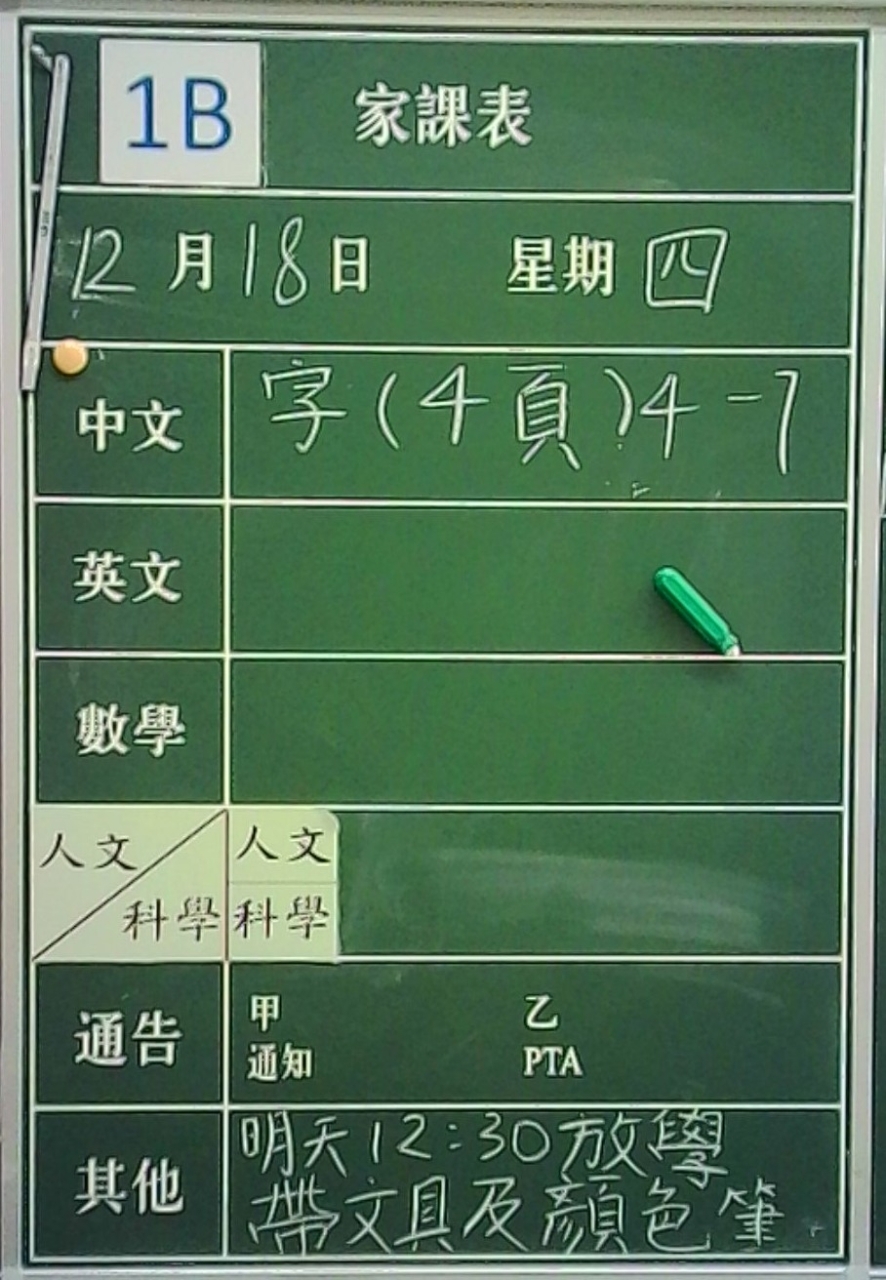 1B 家課表
12月18日 星期四
中文 字(4頁)4-7
英文
數學
人文 人文
科學 科學
通告 甲 乙
通知 PTA
其他 明天12:30放學
帶文具及顏色筆